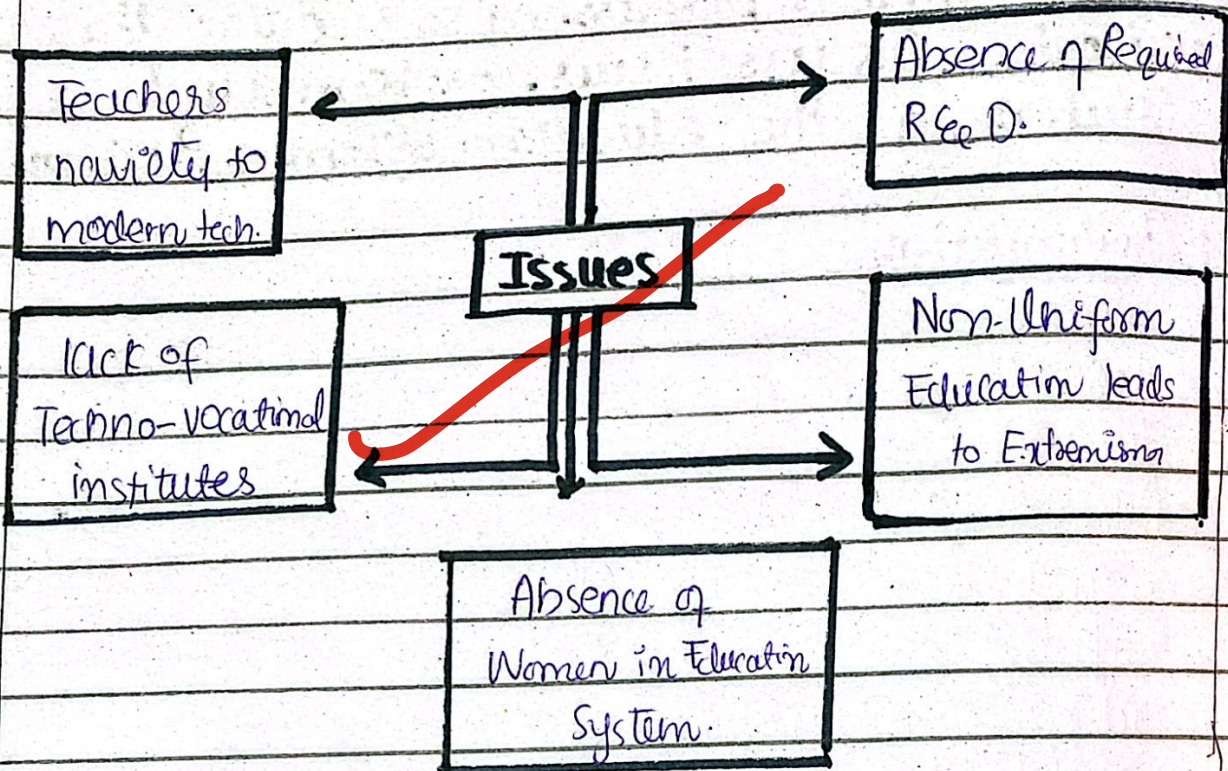 Teachers
naviety to
modern tech.
Absence of Required
R & D.
Issues
lack of
Techno-vocational
institutes
Non-Uniform
Education leads
to Extremism
Absence of
Women in Education
System.